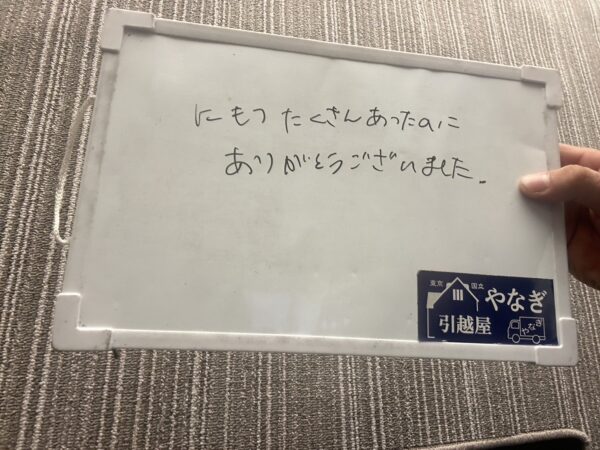 にもつたくさんあったのに
ありがとうございました.
東京 国立
やなぎ
引越屋
やなぎ